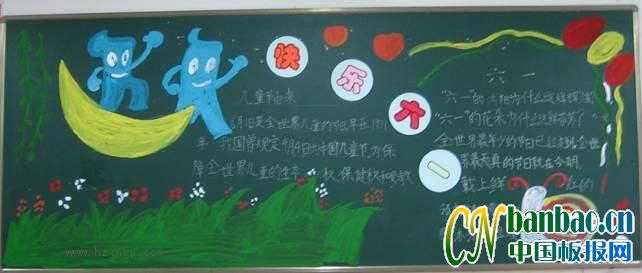 快乐六一
儿童节由来
6月1日是全世界儿童的节日,早在19
年 我国曾规定4月4日为中国儿童节,为保
障全世界儿童的生存 权,保健权和受教
六一
"六一"的太阳为什么这样辉煌
"六一"的花朵为什么这样芬芳
全世界最年少的节日已起来到全世
界最天真的节日就在今朝
戴上鲜 红的
www.hz
CN banbao.cn
中国板报网